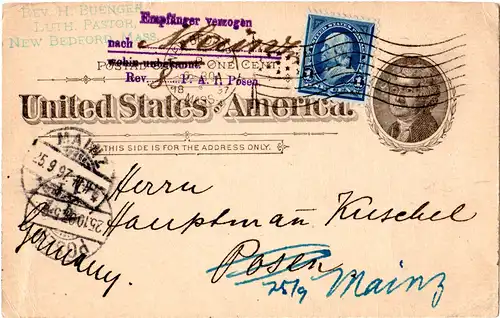 REV. H. BUENGER
LUTH. PASTOR,
NEW BEDFORD, MASS.
Empfänger verzogen
nach Mainz
wohin unbekannt
Rev. P. A. I. Posen
POSTAL CARD ONE CENT
United States of America.
THIS SIDE IS FOR THE ADDRESS ONLY.
MAINZ
25.9.97
Herrn
Hauptman Kuschel
Posen
Germany.
25/9 Mainz